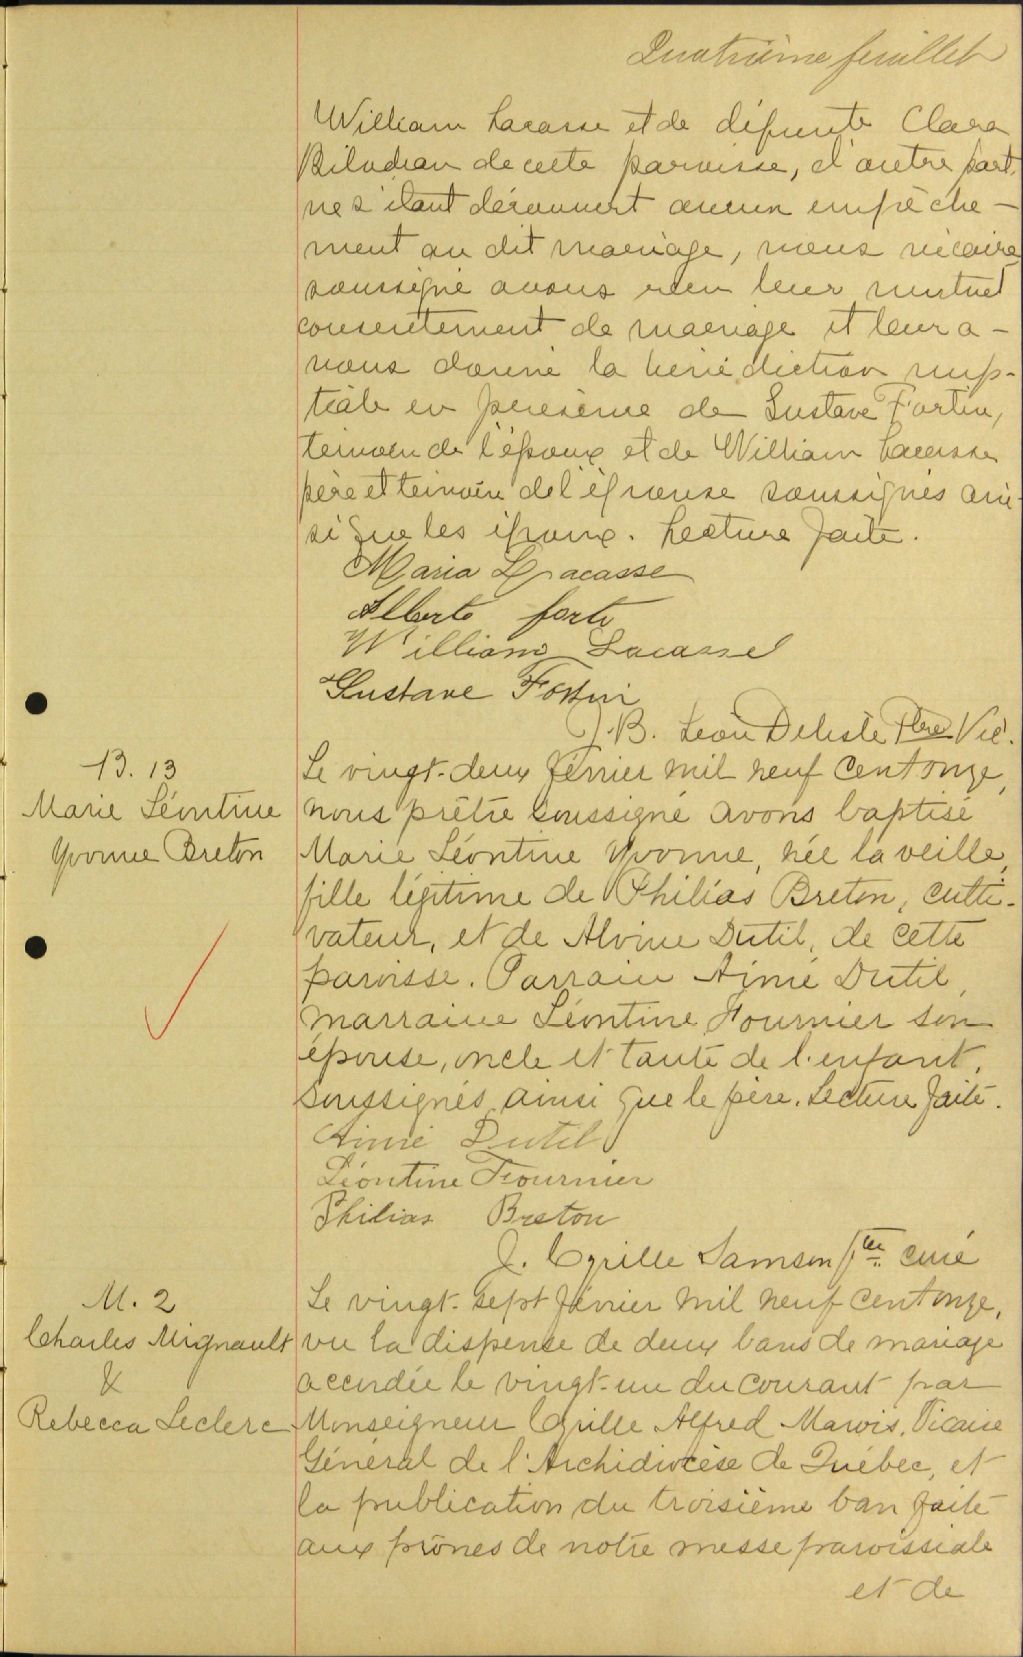 Quatrième feuillet
William Lacasse et de défunte Clara
Bilodeau de cette paroisse, d'autre part,
ne s'étant découvert aucun empêche-
ment au dit mariage, nous vicaire
soussigné avons reçu leur mutuel
consentement de mariage et leur a-
vons donné la bénédiction nup-
tiale en présence de Gustave Fortin,
témoin de l'époux et de William Lacasse
père et témoin de l'épouse soussignés ain-
si que les époux. Lecture faite.
Maria Lacasse
Alberto forte
William Lacasse
Gustave Fortin
J. B. Léon Delisle Ptre Vic.
B. 13
Marie Léontine
Yvonne Breton
Le vingt-deux février mil neuf cent onze,
nous prêtre soussigné avons baptisé
Marie Léontine Yvonne, née la veille,
fille légitime de Philias Breton, culti-
vateur, et de Alvine Dutil, de cette
paroisse. Parrain Aimé Dutil,
marraine Léontine Fournier son
épouse, oncle et tante de l'enfant,
soussignés ainsi que le père. Lecture faite.
Aimé Dutil
Léontine Fournier
Philias Breton
J. Cyrille Samson ptre curé
M. 2
Charles Mignault
&
Rebecca Leclerc
Le vingt-sept février mil neuf cent onze,
vu la dispense de deux bans de mariage
accordée le vingt-un du courant par
Monseigneur Cyrille Alfred Marois, Vicaire
Général de l'Archidiocèse de Québec, et
la publication du troisième ban faite
aux prônes de notre messe paroissiale
et de